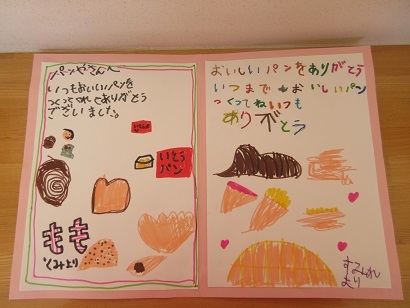 パンやさんへ
いつもおいしいパンを
つくってくれてありがとう
ございました。
いとう
パン
もも
くみより
おいしいパンをありがとう
いつまでもおいしいパン
つくってねいつも
ありがとう
すみれ
より